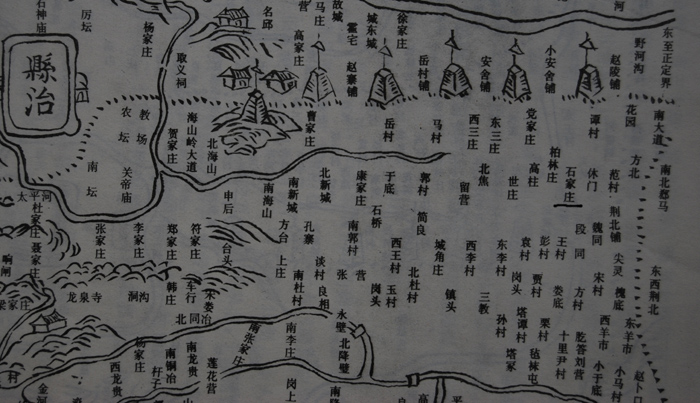 縣治
石神庙
厉坛
杨家庄
取义祠
名邱
高家庄
营
马庄
故城
霍宅
赵寨铺
城东城
徐家庄
岳村铺
安舍铺
小安舍铺
赵陵铺
野河沟
河
东至正定界
农坛
教场
南坛
关帝庙
贺家庄
海山岭大道
北海山
曹家庄
岳村
马村
西三庄
东三庄
党家庄
柏林庄
谭村
花园
南大道
方北
南北郄马
太平河
杜家庄
聂家庄
张家庄
李家庄
郑家庄
符家庄
申后
南海山
南新城
北新城
康家庄
于底
郭村
留营
北焦
世庄
高柱
石家庄
休门
范村
荆北铺
台头
方台
上庄
孔寨
谈村
南郭村
石桥
简良
西王村
城角庄
西李村
东李村
袁村
彭村
王村
段同
魏同
尖灵
槐底
东西荆北
响闸
梁家庄
龙泉寺
涧沟
韩庄
车行
北同冶
宋娄
南杜村
良相
张营
岗头
玉村
北杜村
镇头
三教
孙村
岗头
塔谭村
贾村
栗村
娄底
方村
宋村
西羊市
东羊市
永壁
北降壁
塔冢
毡袜屯
十里尹村
乾答刘营
小于底
小马村
赵卜口
村
金河
杨家庄
西龙贵
南铜冶
杆子
南龙贵
莲花营
南张家庄
南李庄
岗上
南降
良
高
平